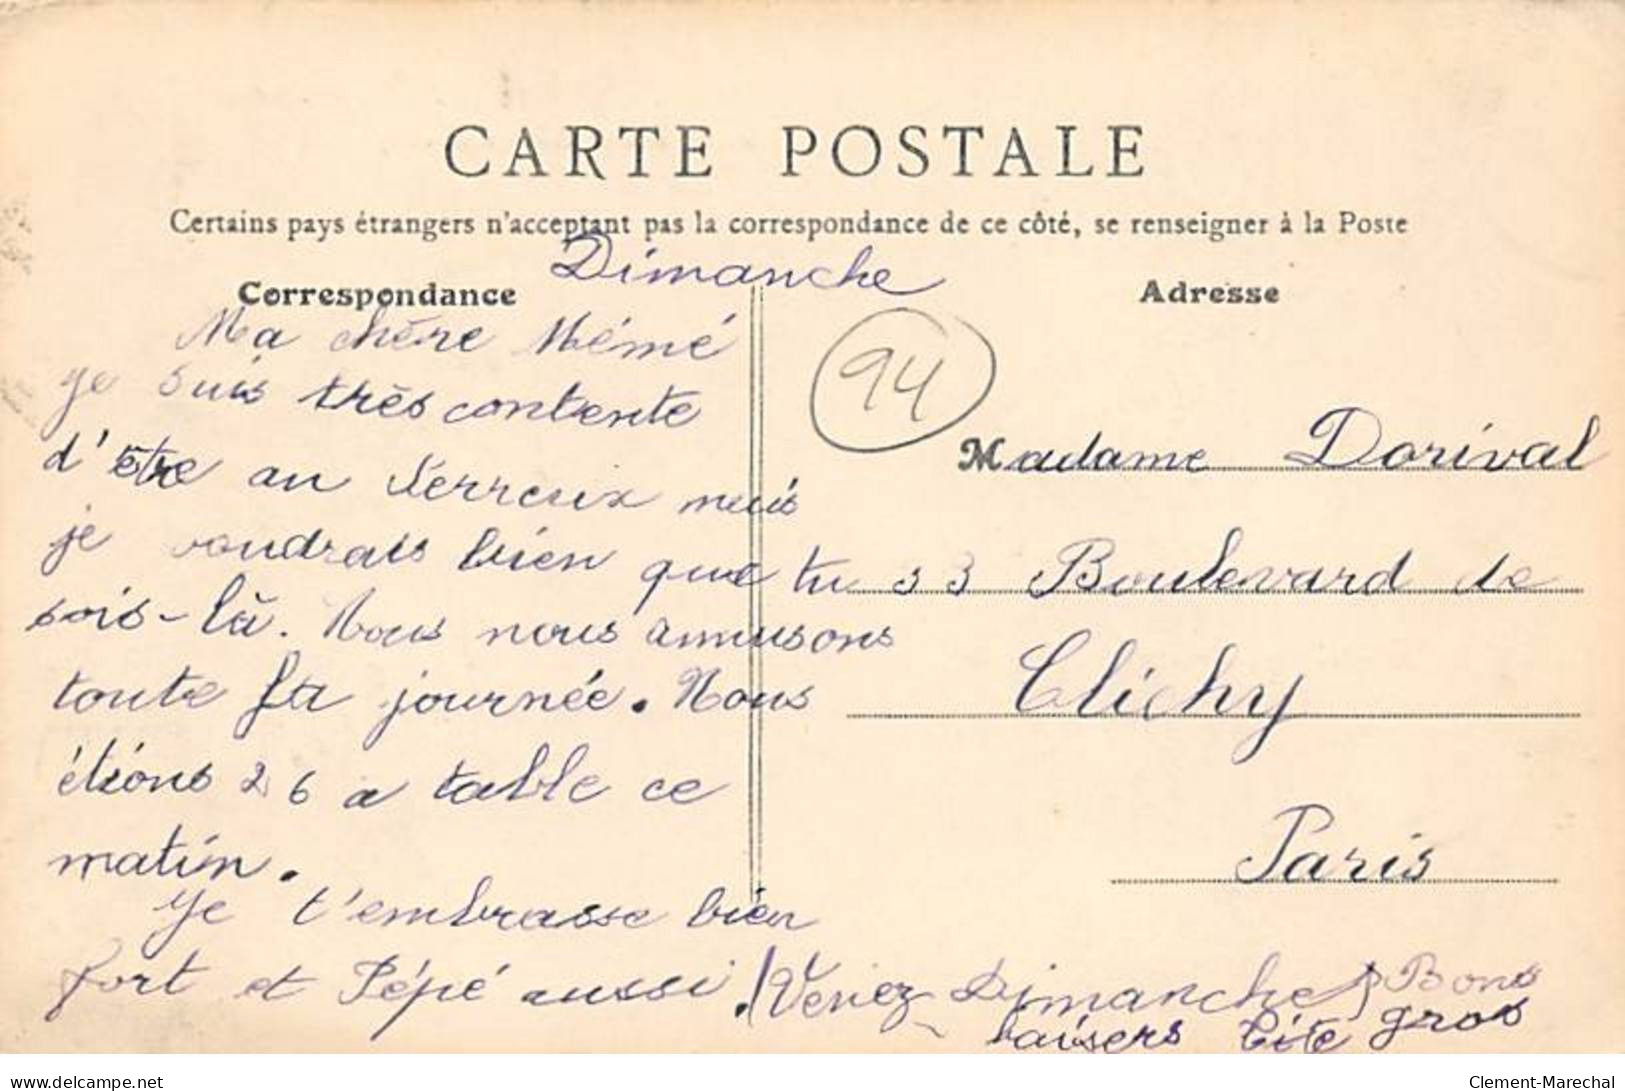 CARTE POSTALE
Certains pays étrangers n'acceptant pas la correspondance de ce côté, se renseigner à la Poste
Dimanche
Correspondance
Adresse
Ma chère Mémé
je suis très contente
d'être au Perreux mais
je voudrais bien que tu
sois-là. Nous nous amusons
toute la journée. Nous
étions 26 a table ce
matin.
Je t'embrasse bien
fort et Pépé aussi.
(Venez Dimanche) Bons
gros
baisers Tite
94
Madame Dorival
33 Boulevard de
Clichy
Paris
delcampe.net
Clement-Marechal